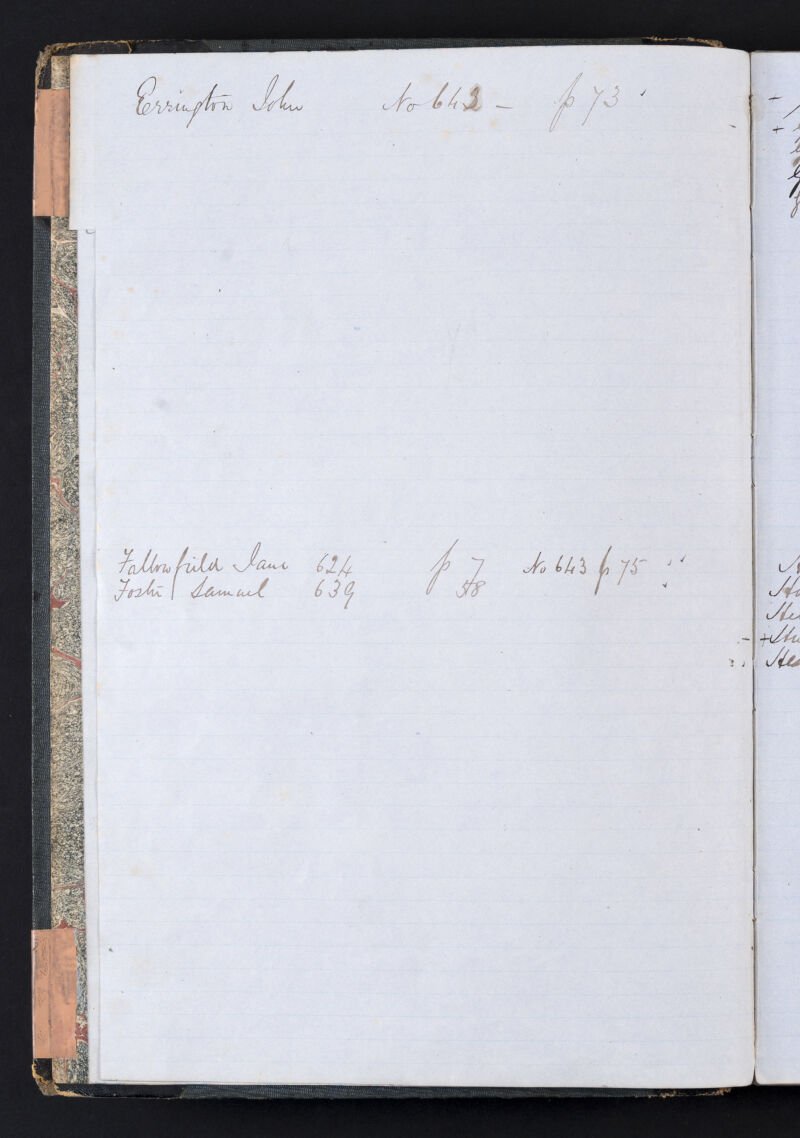 Errington John No 642 – p 73
Fallowfield Jane 624 p 7 No 643 p 75
Foster Samuel 639 58